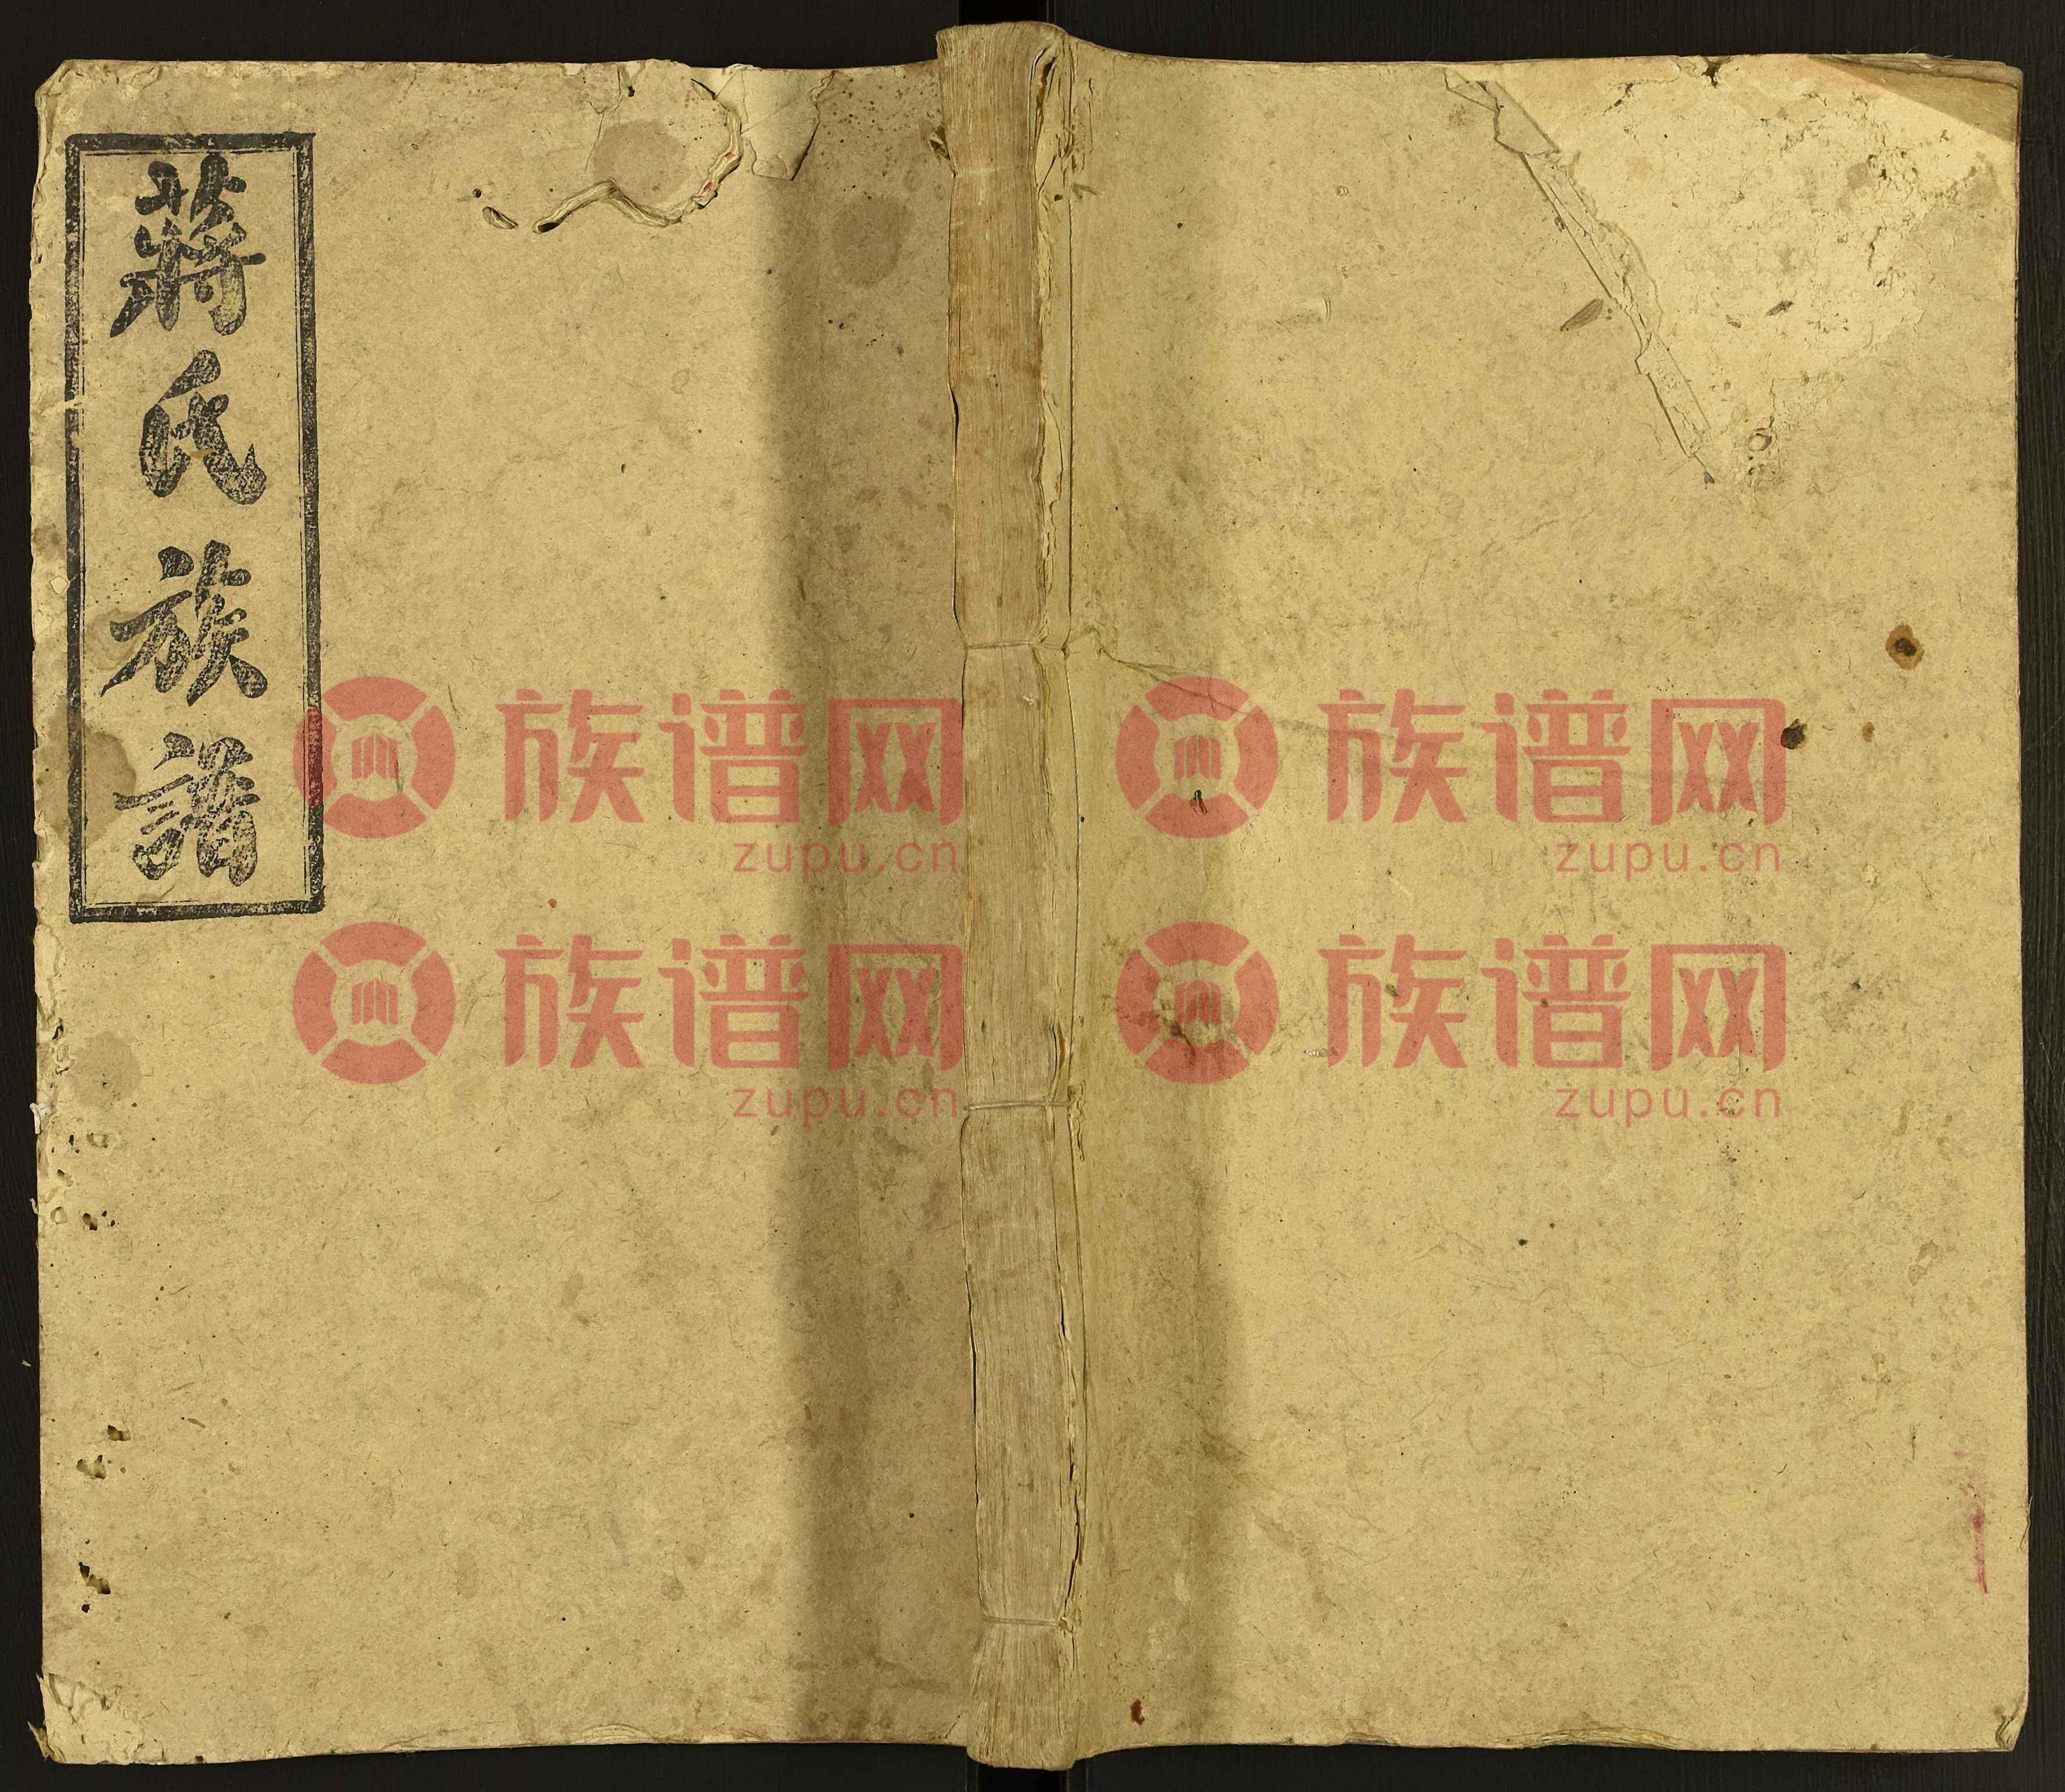 蔣氏族譜
族谱网
zupu.cn
族谱网
zupu.cn
族谱网
zupu.cn
族谱网
zupu.cn